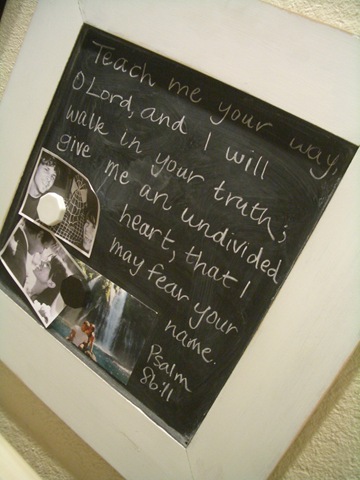 Teach me your way,
O Lord, and I will
walk in your truth;
give me an undivided
heart, that I
may fear your
name.
Psalm
86:11